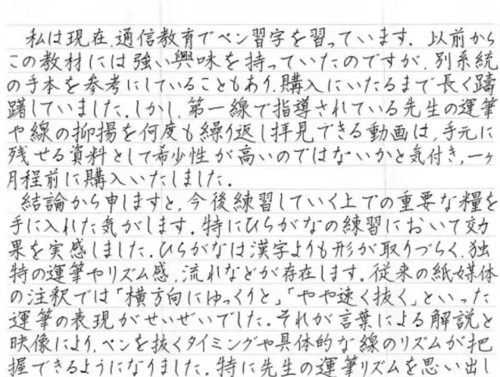 私は現在、通信教育でペン習字を習っています。以前から
この教材には強い興味を持っていたのですが、別系統
の手本を参考にしていることもあり、購入にいたるまで長く躊
躇していました。しかし、第一線で指導されている先生の運筆
や線の抑揚を何度も繰り返し拝見できる動画は、手元に
残せる資料として希少性が高いのではないかと気付き、一ヶ
月程前に購入いたしました。
結論から申しますと、今後練習していく上での重要な糧を
手に入れた気がします。特にひらがなの練習において効
果を実感しました。ひらがなは漢字よりも形が取りづらく、独
特の運筆やリズム感、流れなどが存在します。従来の紙媒体
の注釈では「横方向にゆっくりと」「やや速く抜く」といった
運筆の表現がせいぜいでした。それが言葉による解説と
映像により、ペンを抜くタイミングや具体的な線のリズムが把
握できるようになりました。特に先生の運筆リズムを思い出し